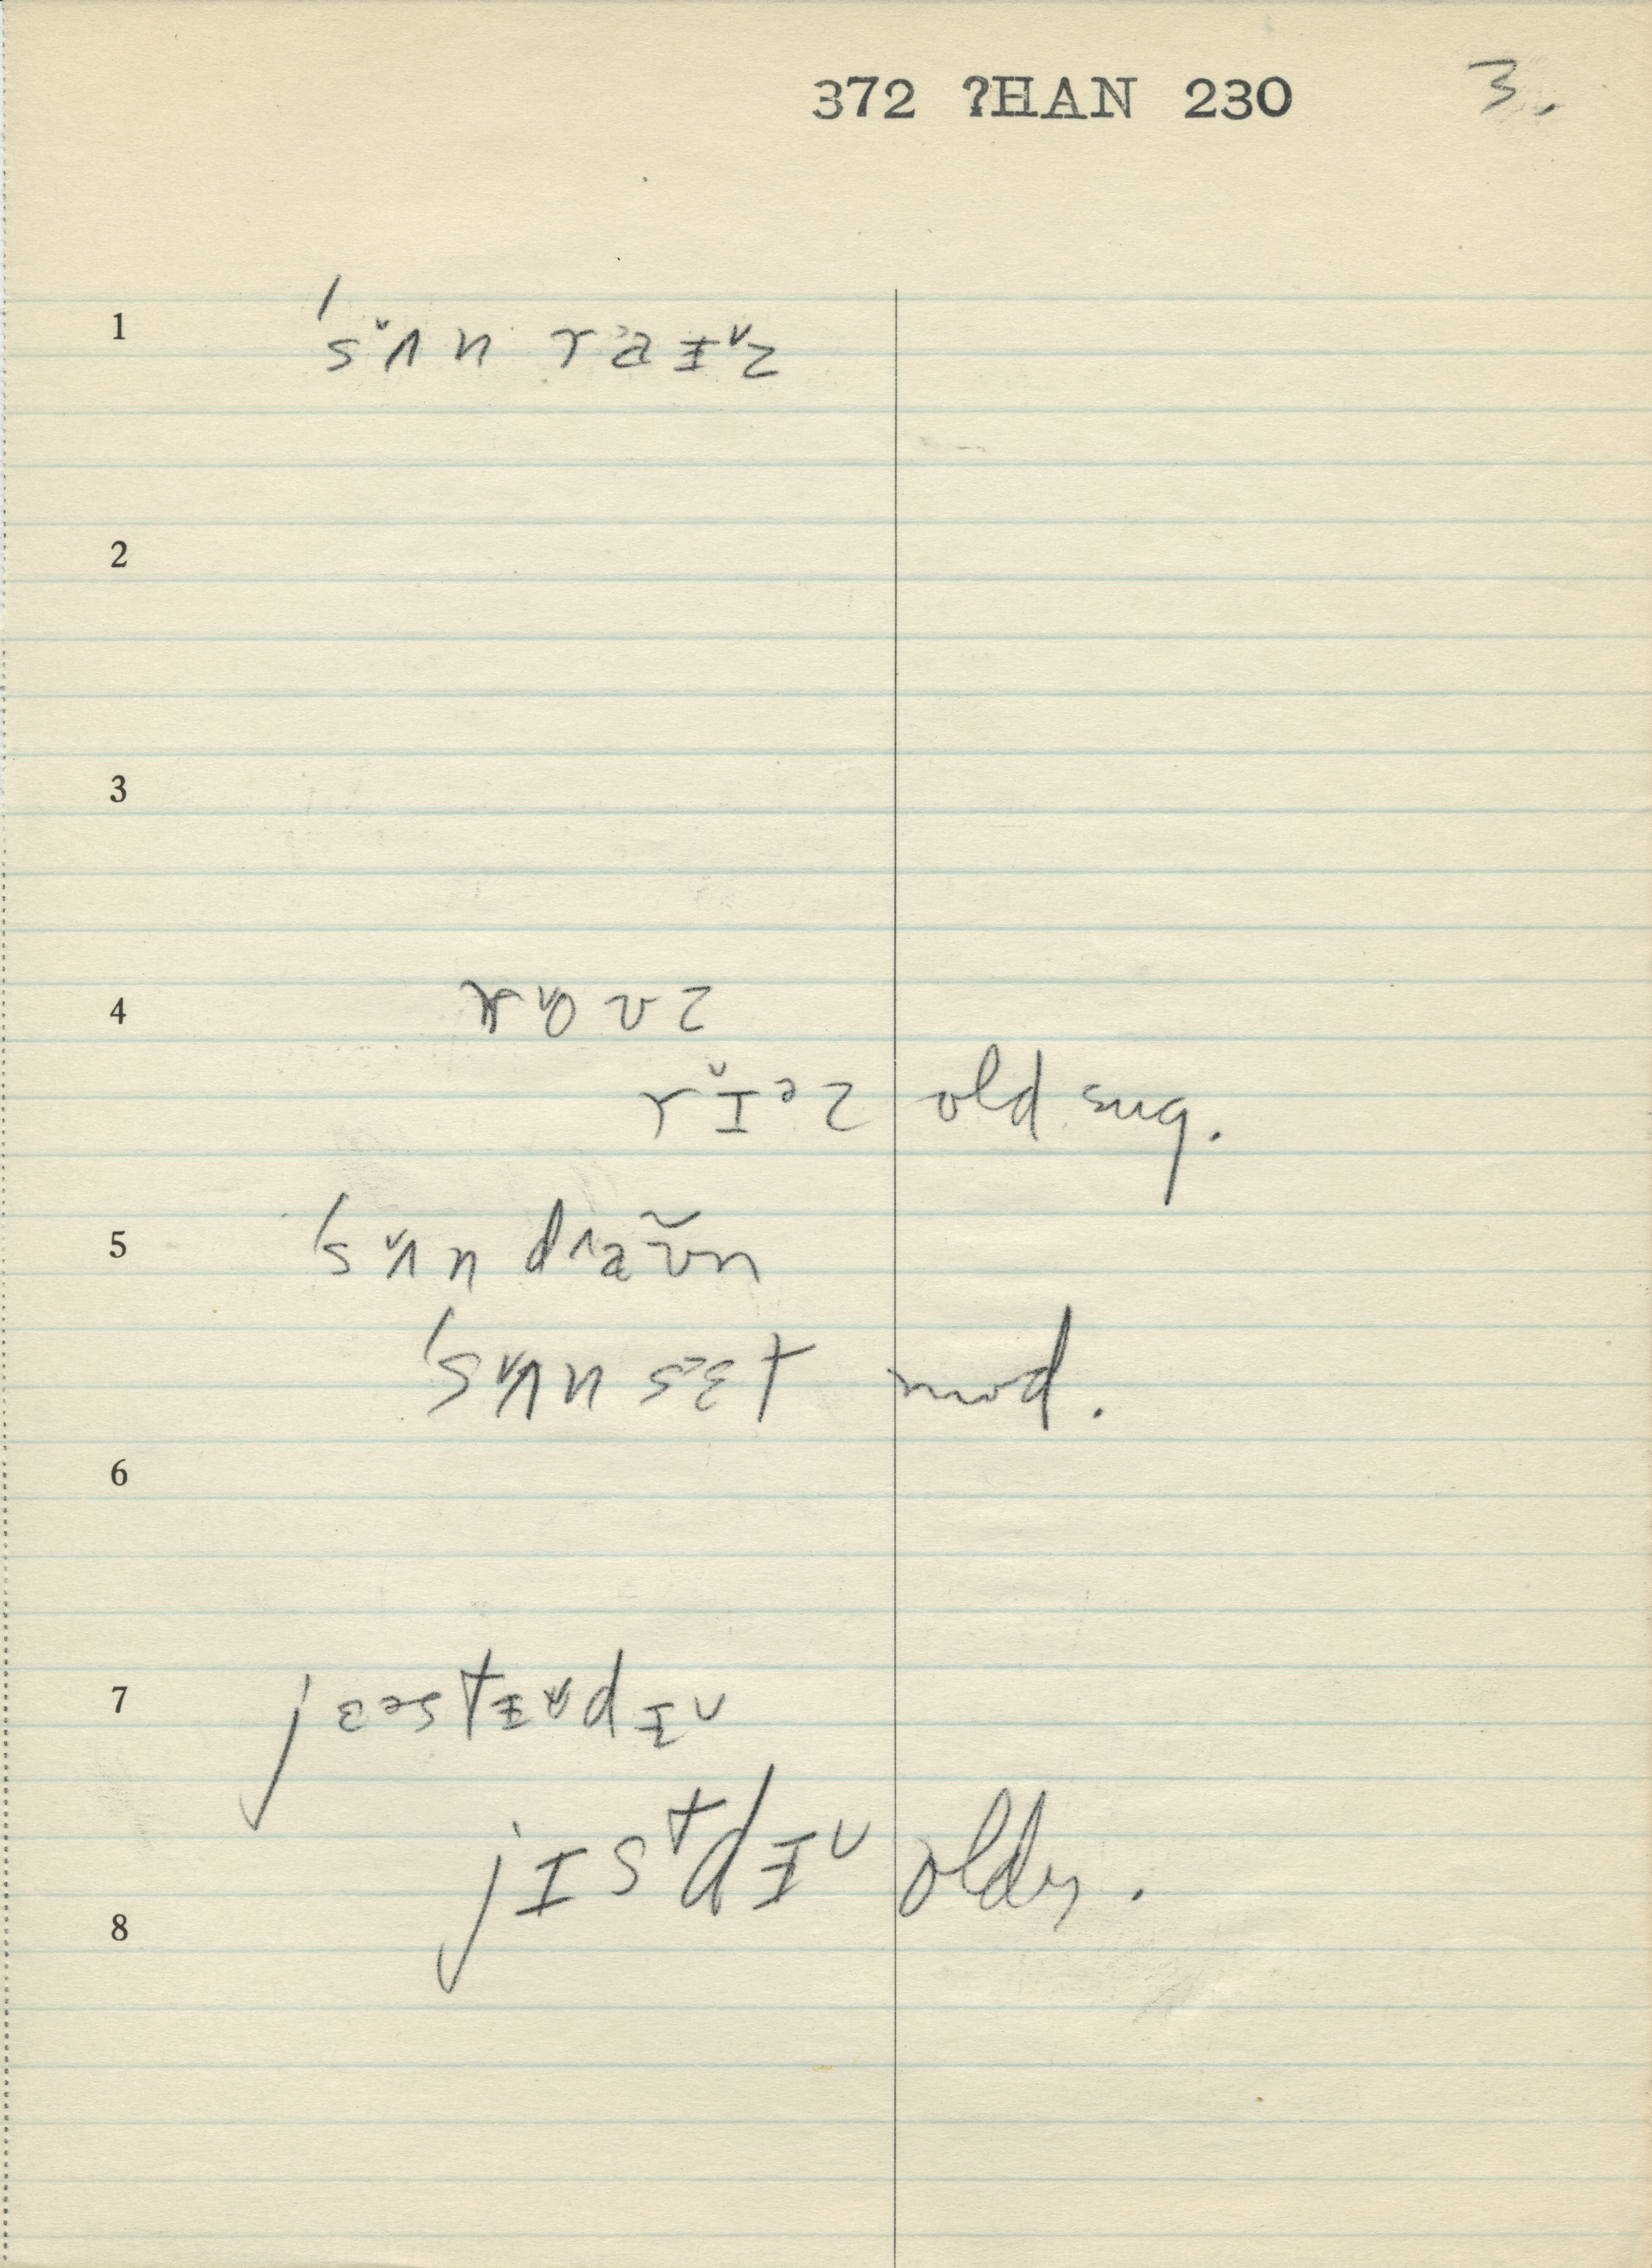 372 ?HAN 230 3.
1 ˈsʌ̌n raɨ̌z
2
3
4 roʊz
rɪ̌ᵊz old sug.
5 ˈsʌ̌n draʊ̃n
ˈsʌ̌n sɛt mod.
6
7 jɛəstɨdɨ
jɪstdɨ older.
8